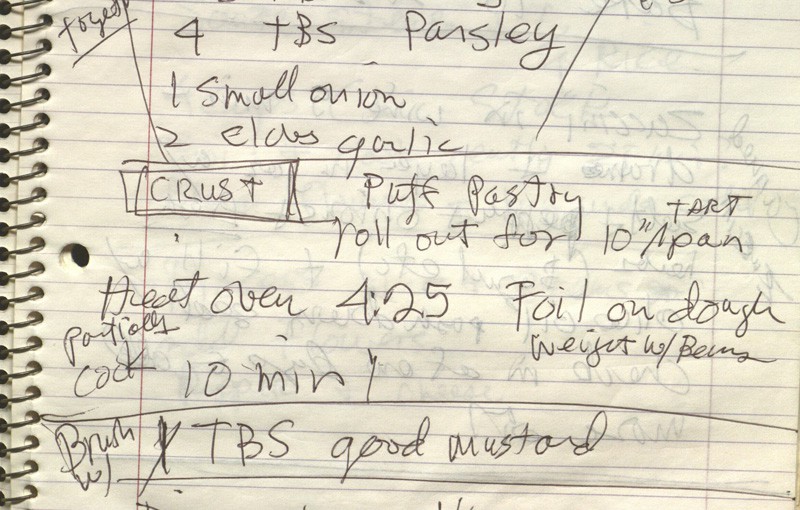 together
4 TBS Parsley
1 small onion
2 cloves garlic
CRUST Puff Pastry
roll out for 10" TART pan
Heat oven 4:25 Foil on dough
partially weight w/ Beans
cook 10 min
Brush w/ 1 TBS good mustard